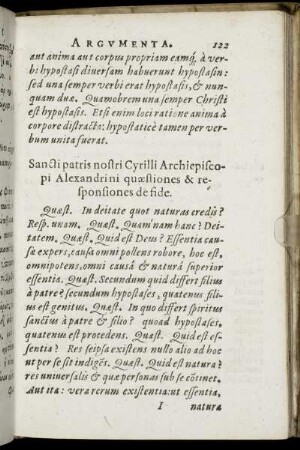 ARGVMENTA. 122
aut anima aut corpus propriam eamq́, à ver-
bi hypostasi diuersam habuerunt hypostasin:
sed una semper verbi erat hypostasis, & nun-
quam duæ. Quamobrem una semper Christi
est hypostasis. Etsi enim loci ratione anima à
corpore distracta: hypostaticè tamen per ver-
bum unita fuerat.
Sancti patris nostri Cyrilli Archiepisco-
pi Alexandrini quæstiones & re-
sponsiones de fide.
Quæst. In deitate quot naturas credis?
Resp. unam. Quæst. Quam nam hanc? Dei-
tatem. Quæst. Quid est Deus? Essentia cau-
sa expers, causa omnipollens robore, hoc est,
omnipotens, omni causâ & naturâ superior
essentia. Quæst. Secundum quid differt filius
à patre? secundum hypostases, quatenus fili-
us est genitus. Quæst. In quo differt spiritus
sanctus à patre & filio? quoad hypostases,
quatenus est protedens. Quæst. Quid est es-
sentia? Res seipsa existens nullo alio ad hoc
ut per se sit indigẽs. Quæst. Quid est natura?
res uniuersalis & quæ personas sub se cõtinet.
Aut ita: vera rerum existentia: ut essentia,
I natura